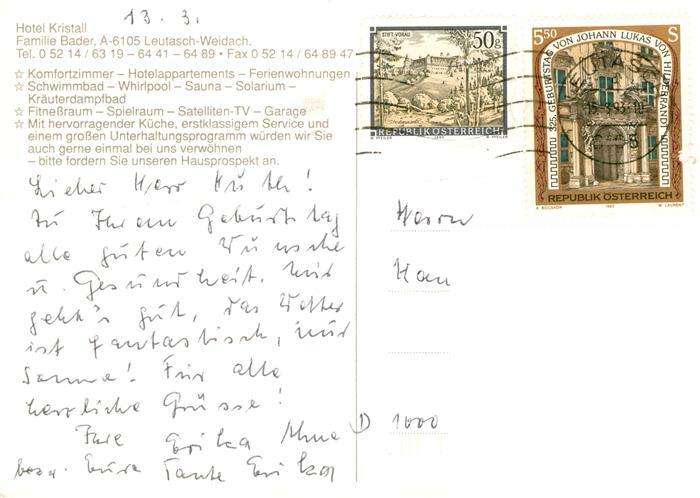 13. 3.
Hotel Kristall
Familie Bader, A-6105 Leutasch-Weidach.
Tel. 0 52 14 / 63 19 – 64 41 – 64 89 • Fax 0 52 14 / 64 89 47
☆ Komfortzimmer – Hotelappartements – Ferienwohnungen
☆ Schwimmbad – Whirlpool – Sauna – Solarium –
Kräuterdampfbad
☆ Fitneßraum – Spielraum – Satelliten-TV – Garage
☆ Mit hervorragender Küche, erstklassigem Service und
einem großen Unterhaltungsprogramm würden wir Sie
auch gerne einmal bei uns verwöhnen
– bitte fordern Sie unseren Hausprospekt an.
Lieber Herr Huth!
Zu Ihrem Geburtstag
alle guten Wünsche
u. Gesundheit. Mir
geht's gut, das Wetter
ist fantastisch, nur
Sonne! Für alle
herzliche Grüsse!
Ihre Erika
bezw. Eure Tante Erika
STIFT VORAU
50g
REPUBLIK ÖSTERREICH
5.50 S
325. GEBURTSTAG VON JOHANN LUKAS VON HILDEBRANDT
REPUBLIK ÖSTERREICH
Herrn
Han
D 1000